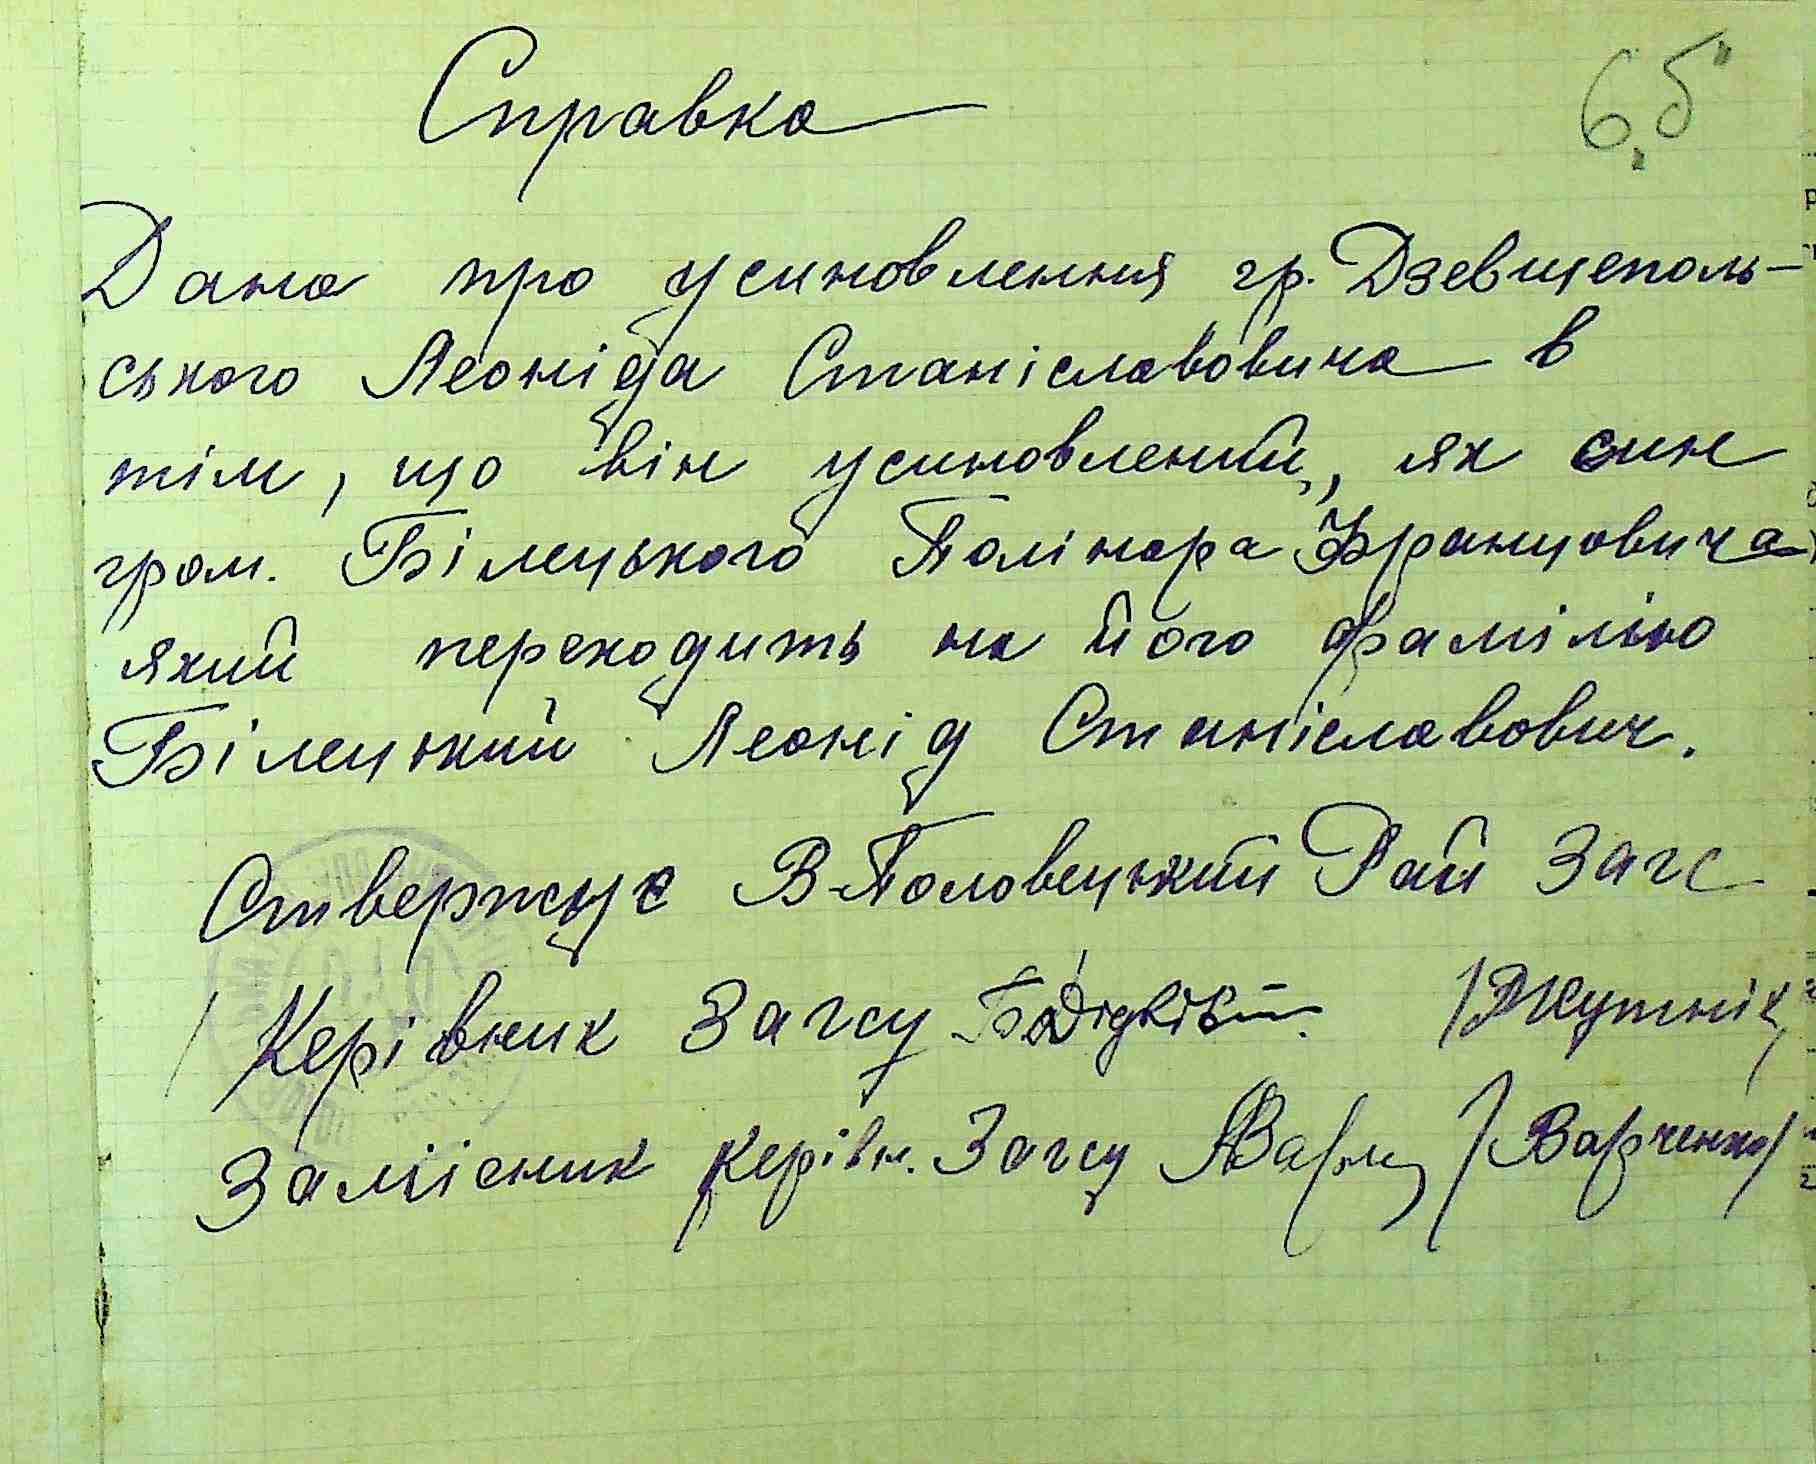 Справка
6„б"
Дана про усиновлення гр. Дзевщеполь-
ського Леоніда Станіславовича в
тім, що він усиновлений, як син
гром. Білецького Полікарпа Францовича
який переходить на його фамілію
Білецький Леонід Станіславович.
Ствержує В-Половецький Рай Загс
Керівник Загсу /Жутнік/
Замісник керівн. Загсу /Варченко/